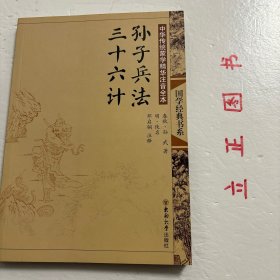 中华传统蒙学精华注音全本
国学经典书系
孙子兵法
三十六计
春秋·孙武 著
明·佚名
邓启铜 注释
东南大学出版社
立正拍卖